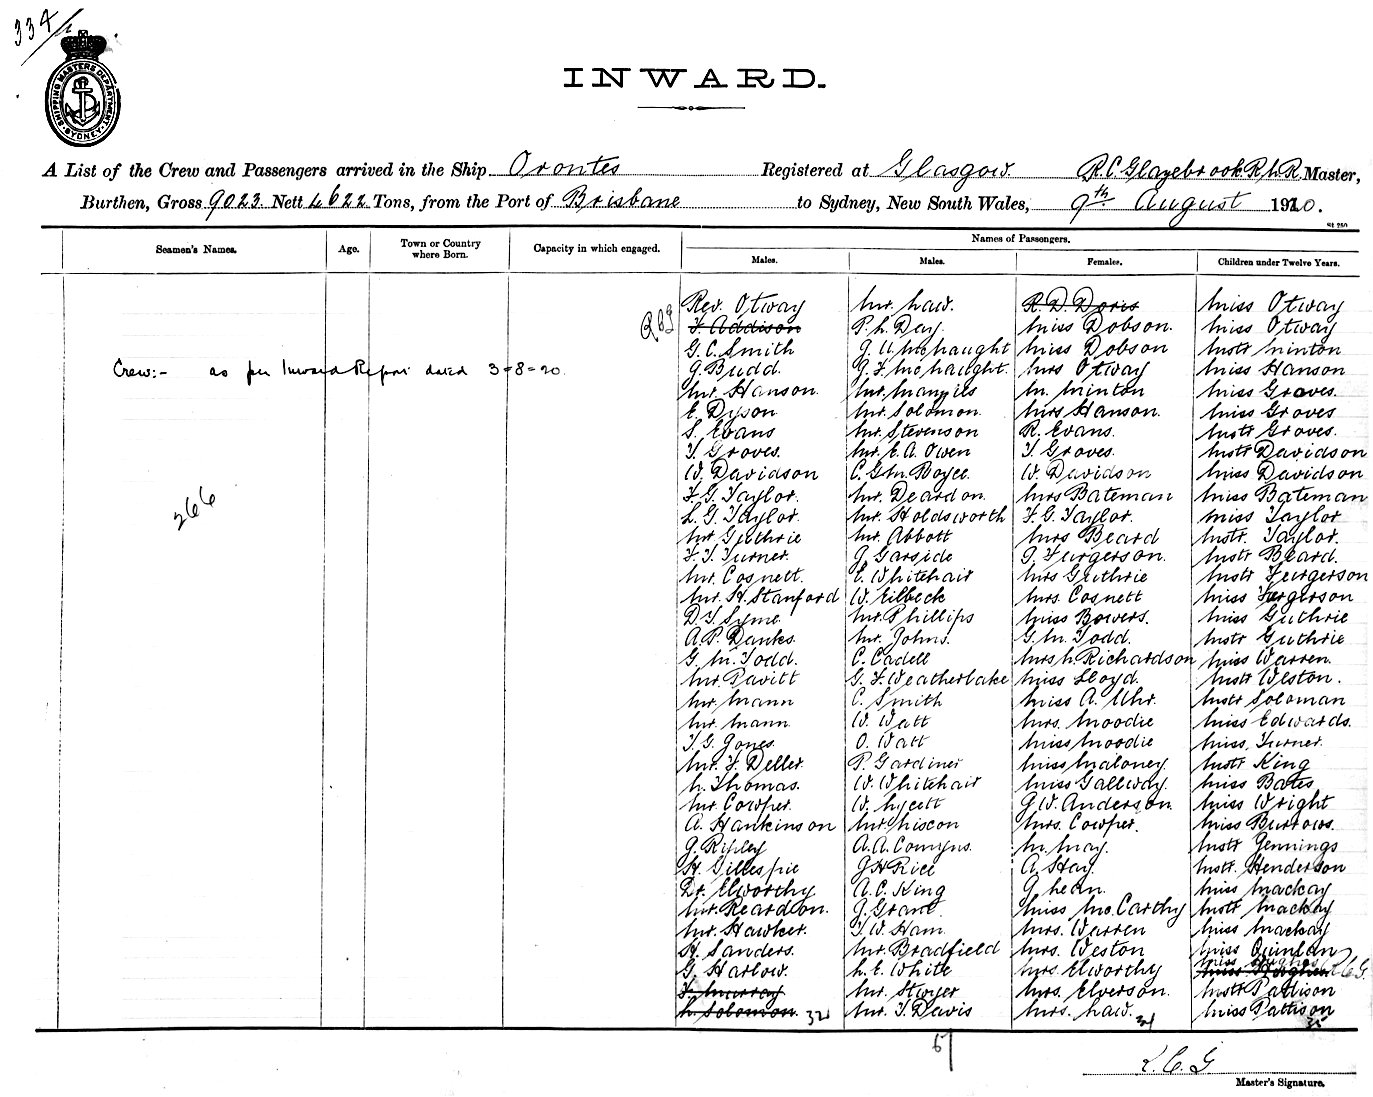 334
SHIPPING MASTERS DEPARTMENT
SYDNEY
INWARD.
A List of the Crew and Passengers arrived in the Ship Orontes Registered at Glasgow. R.C. Glazebrook R.N.R Master,
Burthen, Gross 9023 Nett 4622 Tons, from the Port of Brisbane to Sydney, New South Wales, 9th August 1920.
St 250
Seamen's Names. Age. Town or Country where Born. Capacity in which engaged. Names of Passengers.
Males. Males. Females. Children under Twelve Years.
Rev. Otway Mr. Law. R. D. Doris Miss Otway
F. Addison P. L. Day. Miss Dobson. Miss Otway
G. C. Smith McNaught Miss Dobson Mstr Minton
Crew:- as per Inward Report dated 3-8-20.
G. Budd. McNaught. Mrs Otway Miss Hanson
Mr. Hanson. Mr. M. Minton Miss Groves.
E. Dyson Mr. Solomon. Mrs Hanson. Miss Groves
S. Evans Mr. Stevenson R. Evans. Mstr Groves.
T. Groves. Mr. E. A. Owen T. Groves. Mstr Davidson
W. Davidson Boyce. W. Davidson Miss Davidson
F. G. Taylor. Mr. Deardon. Mrs Bateman Miss Bateman
266
L. G. Taylor. Mr. Holdsworth F. G. Taylor. Miss Taylor
Mr Guthrie Mr. Abbott Mrs Beard Mstr. Taylor.
F. T. Turner. J. Garside J. Furgerson. Mstr Beard.
Mr. Cosnett. E. Whitehair Mrs Guthrie Mstr Furgerson
Mr. H. Stanford W. Eilbeck Mrs. Cosnett Miss Furgerson
D. T. Syme Mr. Phillips Miss Bowers. Miss Guthrie
A. P. Danks. Mr. Johns. G. M. Todd. Mstr Guthrie
G. M. Todd. C. Cadell Mrs Richardson Miss Warren.
Mr. Pavitt G. F. Weatherlake Miss Lloyd. Mstr Weston.
Mr. Mann C. Smith Miss A. Uhr. Mstr Soloman
Mr. Mann. W. Watt Mrs. Moodie Miss Edwards.
T. G. Jones. O. Watt Miss Moodie Miss. Turner.
Mr. F. Deller. P. Gardiner Miss Maloney. Mstr King
N. Thomas. W. Whitehair Miss Gallway. Miss Bates
Mr. Cowper. W. Lycett G. W. Anderson. Miss Wright
A. Hankinson Mr. Niscon Mrs. Cowper. Miss Burrows.
G. Ripley A. A. Comyns. M. May. Mstr Jennings
H. Gillespie G H Rice A. Hay. Mstr. Henderson
Dr. Elworthy A. C. King Miss Mackay
Mr. Reardon. J. Grant. Miss McCarthy Mstr Mackay
Mr. Hawker. T. W. Ham Mrs. Warren Miss Mackay
H. Sanders. Mr. Bradfield Mrs. Weston Miss Quinlan
G. Harlow. L. E. White Mrs. Elworthy Miss Hughes R.C.G.
F. Murray Mr. Stwyer Mrs. Elverson. Mstr Pattison
N. Solomon. 32 Mr. T. Davis Mrs. Law. 34 Miss Pattison 35
67
R. C. G
Master's Signature.